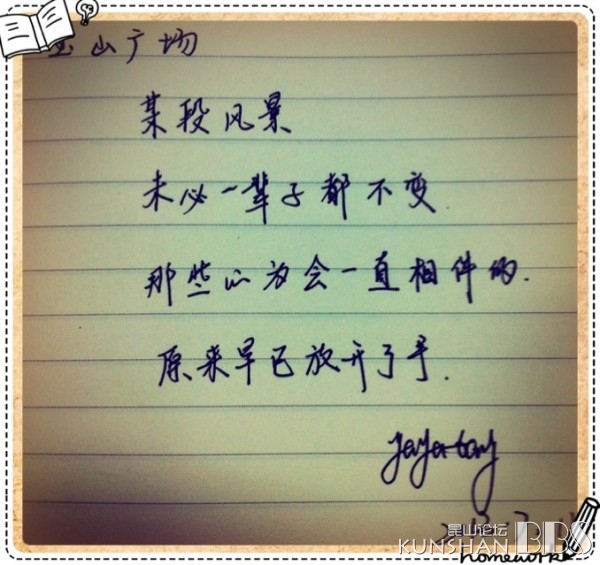 玉山广场
某段风景
未必一辈子都不变
那些以为会一直相伴的.
原来早已放开了手.
昆山论坛
KUNSHAN BBS
homework